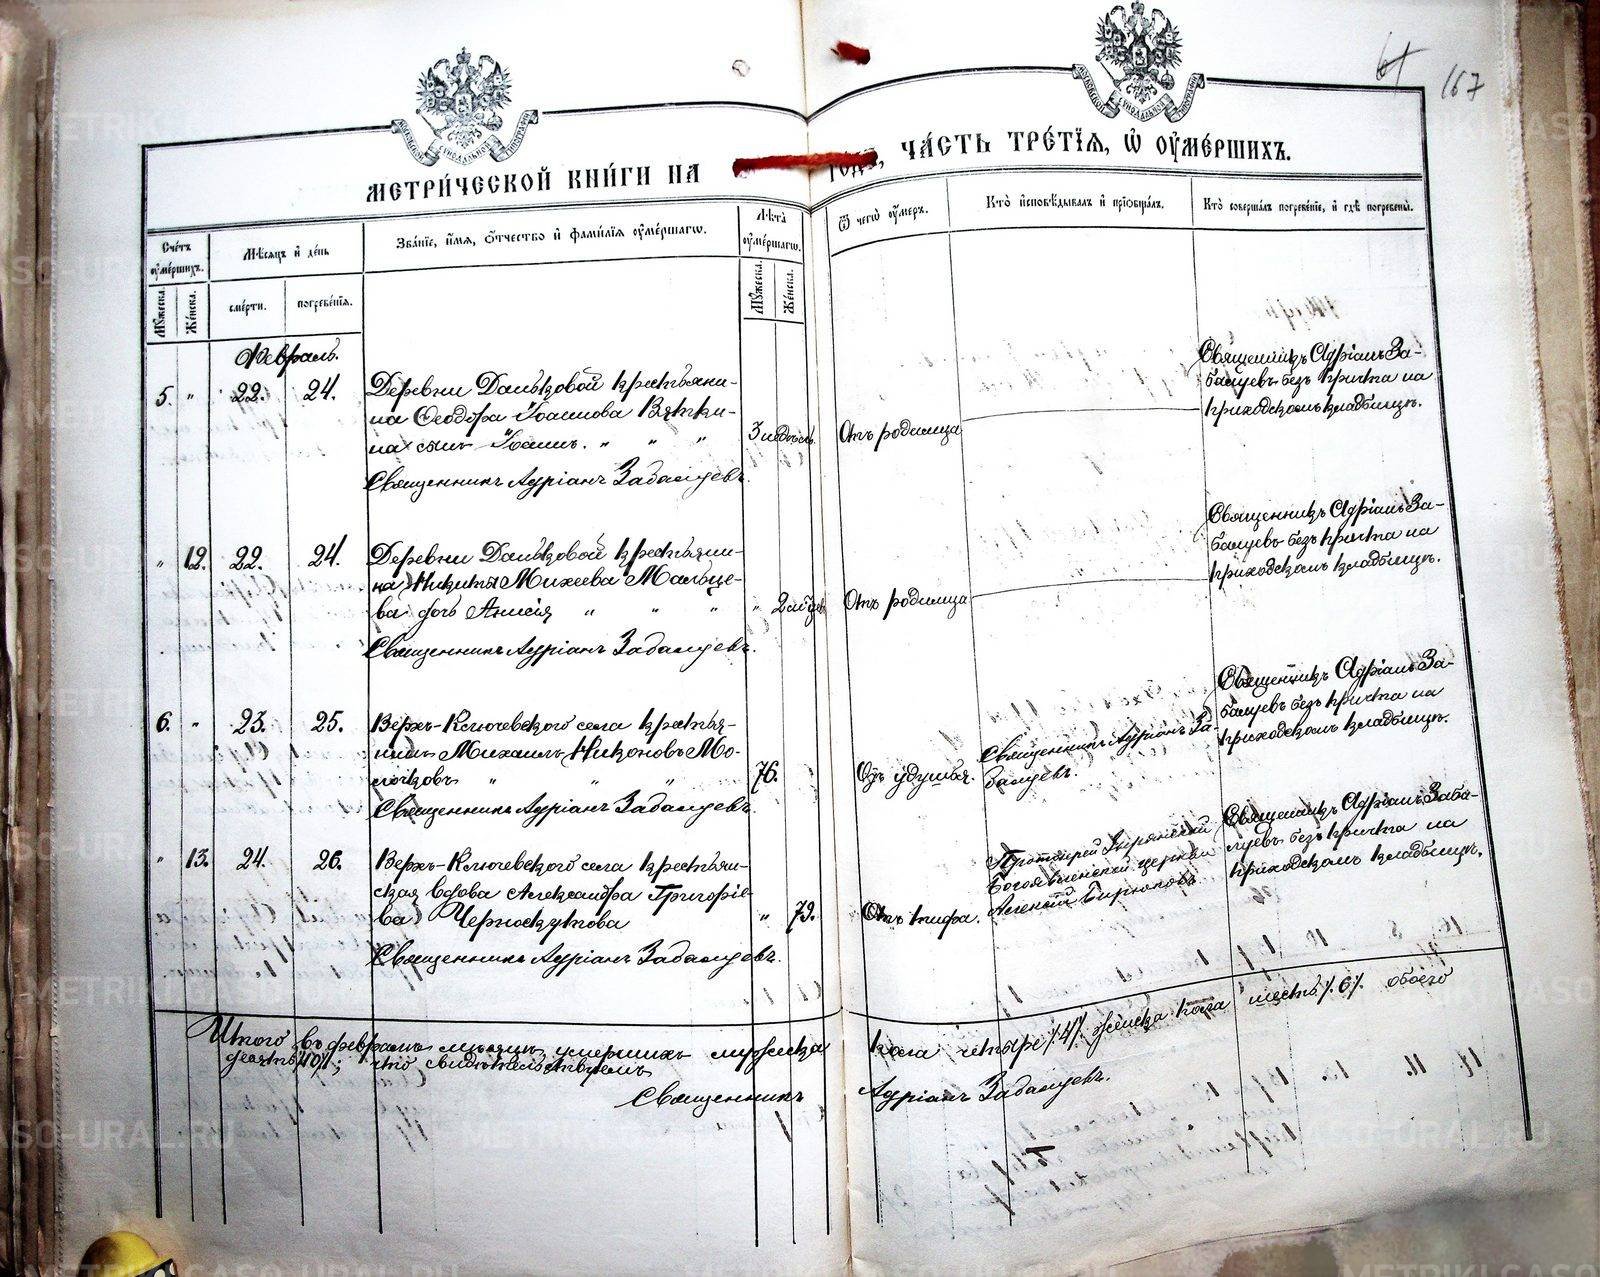 61 167
МЕТРИ́ЧЕСКОЙ КНИ́ГИ НА ГОДЪ, ЧА́СТЬ ТРЕ́ТІѦ, Ѡ҆ ОУ҆МЕ́РШИХЪ.
Сче́тъ оу҆ме́ршихъ.
Мꙋ́жеска.
Же́нска.
Мѣ́сѧцъ и҆ де́нь
сме́рти.
погребе́нїѧ.
Зва́нїе, и҆́мѧ, ѻ҆́тчество и҆ фами́лїѧ оу҆ме́ршагѡ.
Лѣ́та оу҆ме́ршагѡ.
Мꙋ́жеска.
Же́нска.
Ѿ чегѡ̀ оу҆́меръ.
Кто̀ и҆сповѣ́дывалъ и҆ прїѡбща́лъ.
Кто̀ соверша́лъ погребе́нїе, и҆ гдѣ̀ погребены̀.
Февраль.
5. " 22. 24.
Деревни Даньковой крестьяни-
на Ѳеодора Іоаннова Вятки-
на сынъ Іоаннъ. " " "
Священникъ Адріанъ Забалуевъ.
3 недѣль.
Отъ родимца
Священникъ Адріанъ За-
балуевъ безъ причта на
приходскомъ кладбищѣ.
" 12. 22. 24.
Деревни Даньковой крестьяни-
на Никиты Михеева Мальце-
ва дочь Анисія " " "
Священникъ Адріанъ Забалуевъ.
"
Отъ родимца
Священникъ Адріанъ За-
балуевъ безъ причта на
приходскомъ кладбищѣ.
6. " 23. 25.
Верхъ-Ключевского села крестья-
нинъ Михаилъ Никоновъ Мо-
лочковъ " " "
Священникъ Адріанъ Забалуевъ.
76.
Отъ удушья.
Священникъ Адріанъ За-
балуевъ.
Священникъ Адріанъ За-
балуевъ безъ причта на
приходскомъ кладбищѣ.
" 13. 24. 26.
Верхъ-Ключевского села крестьян-
ская вдова Александра Григоріе-
ва Черноскутова
Священникъ Адріанъ Забалуевъ.
" 79.
Отъ тифа.
Протоіерей
Богоявленской церкви
Бирюковъ
Священникъ Адріанъ Заба-
луевъ безъ причта на
приходскомъ кладбищѣ.
Итого въ февралѣ мѣсяцѣ умершихъ мужеска пола четыре /4/ женска пола шесть /6/ обоего
десять /10/; что свидѣтельствуемъ
Священникъ Адріанъ Забалуевъ.